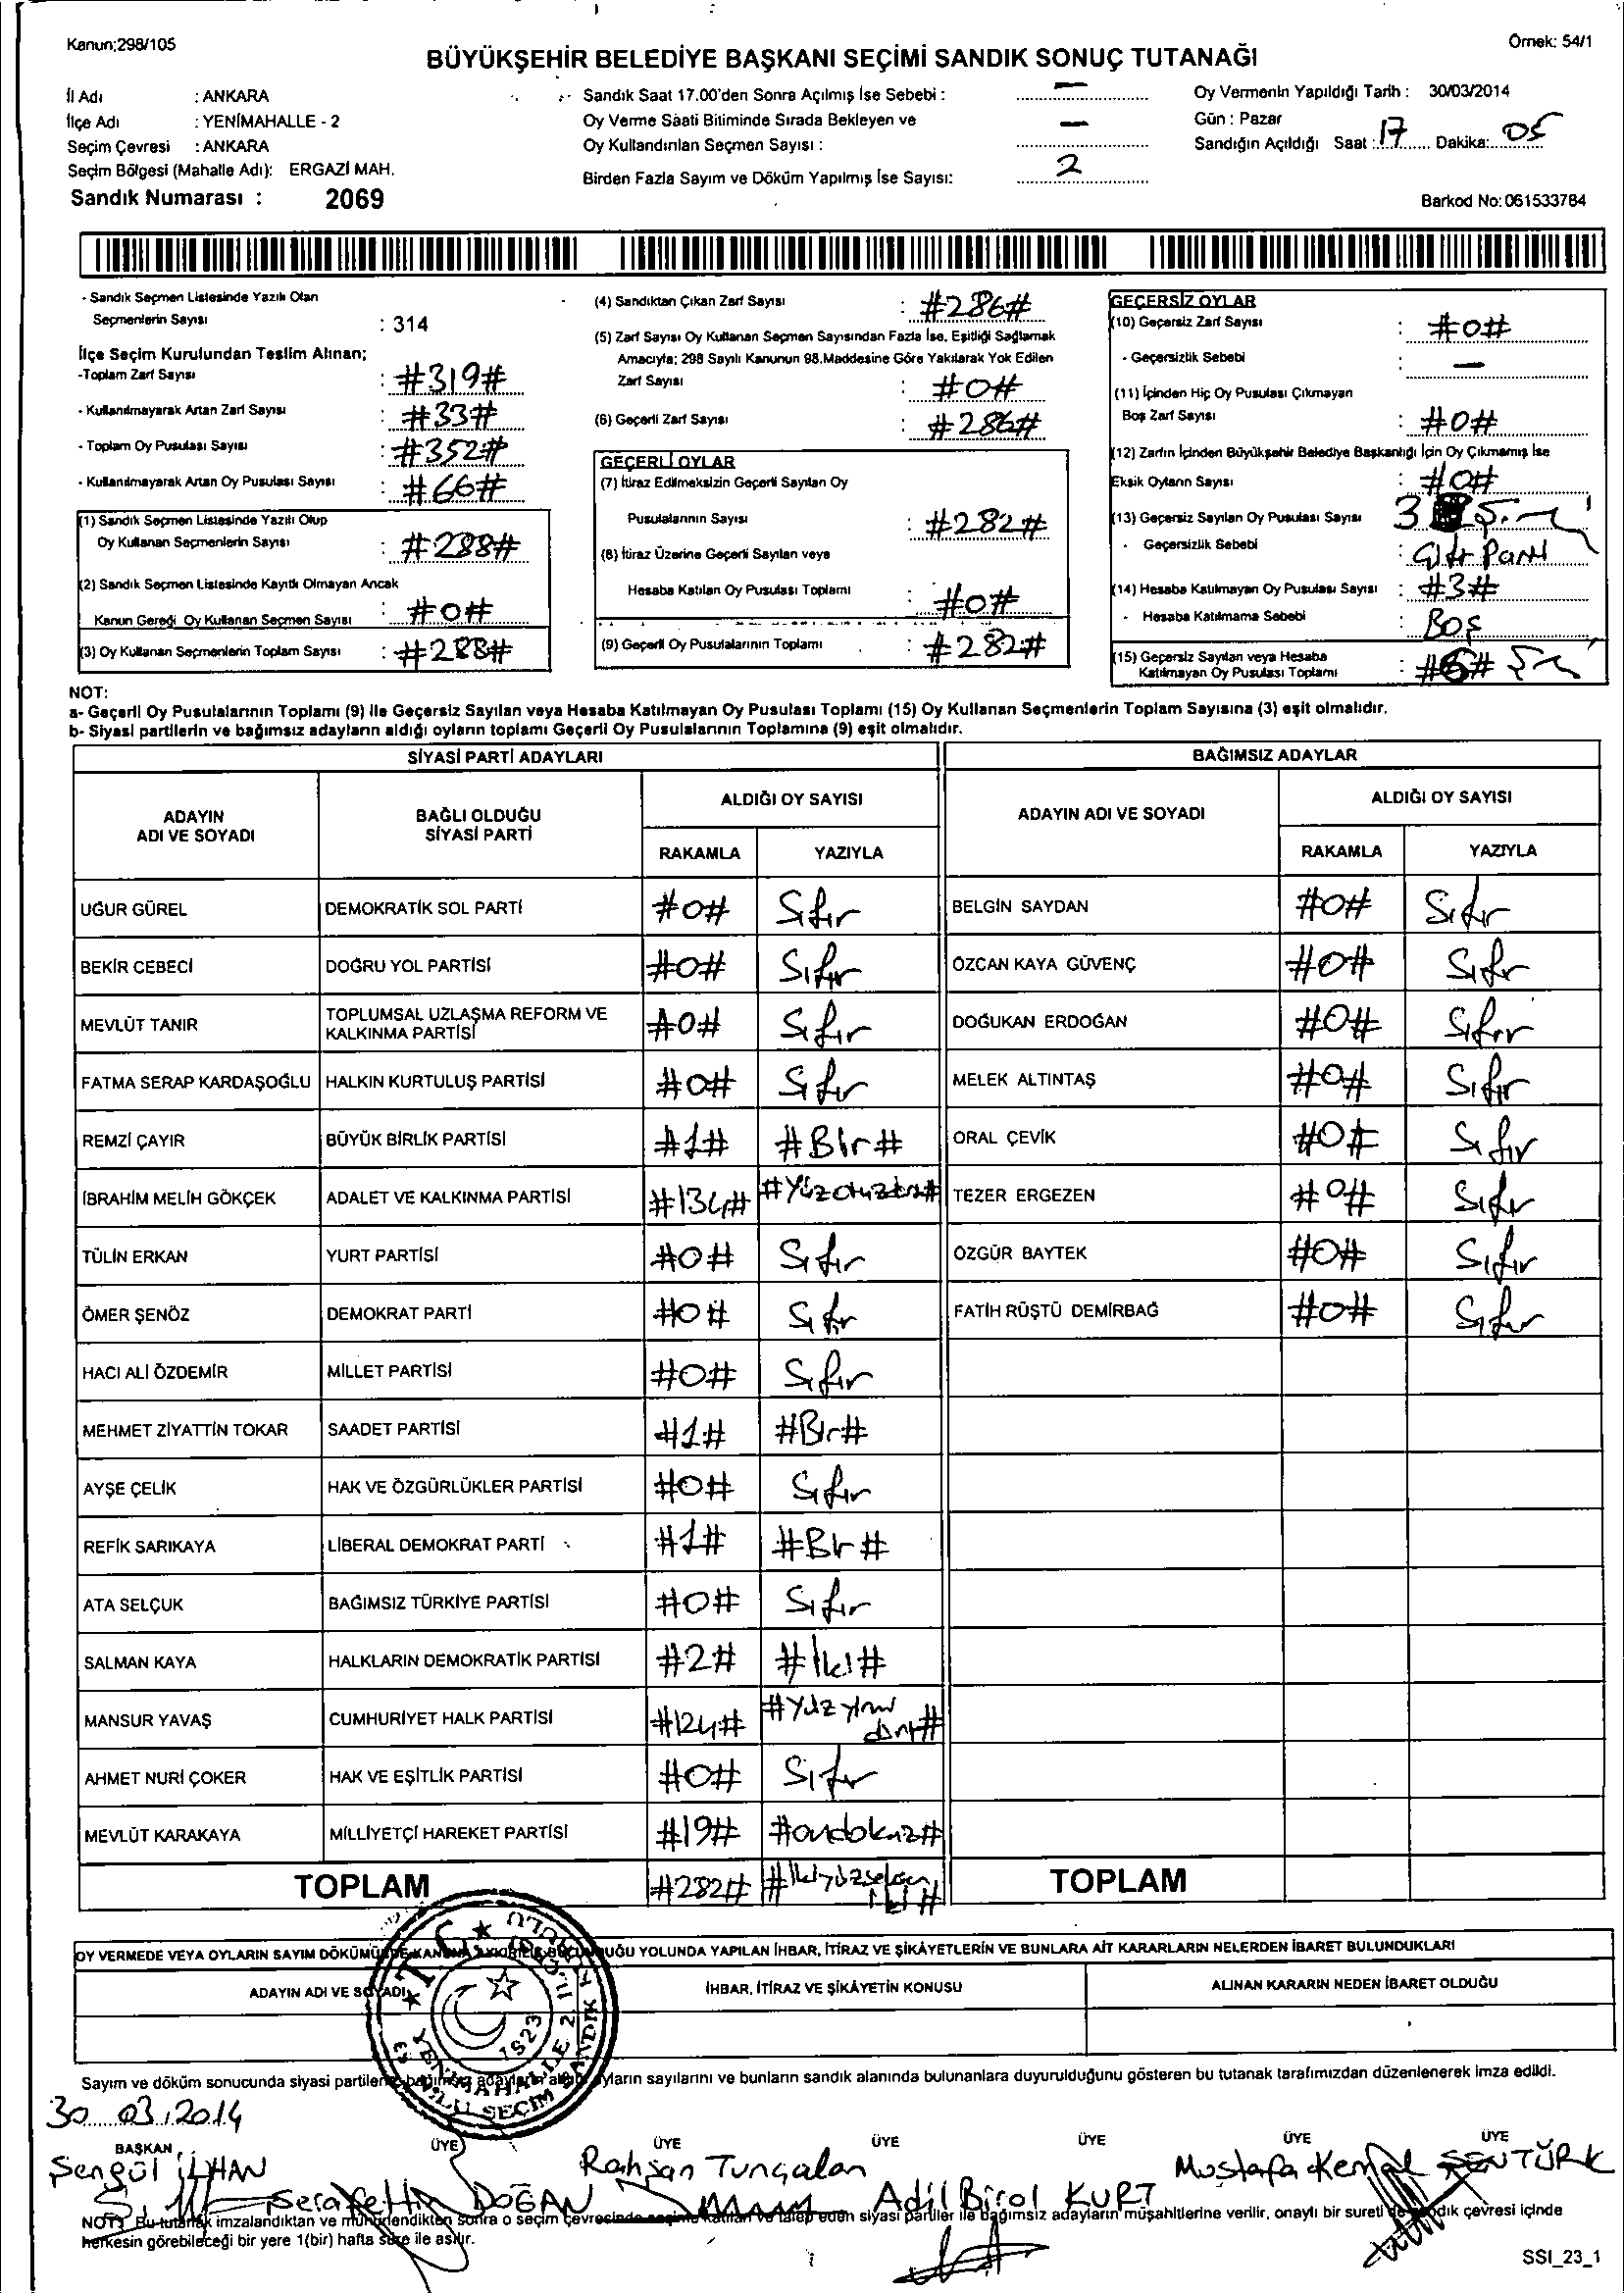 Kanun;298/105
Örnek: 54/1
BÜYÜKŞEHİR BELEDİYE BAŞKANI SEÇİMİ SANDIK SONUÇ TUTANAĞI
İl Adı : ANKARA
İlçe Adı : YENİMAHALLE - 2
Seçim Çevresi : ANKARA
Seçim Bölgesi (Mahalle Adı): ERGAZİ MAH.
Sandık Numarası : 2069
Sandık Saat 17.00'den Sonra Açılmış İse Sebebi : —
Oy Verme Sâati Bitiminde Sırada Bekleyen ve
Oy Kullandırılan Seçmen Sayısı : —
Birden Fazla Sayım ve Döküm Yapılmış İse Sayısı: 2
Oy Vermenin Yapıldığı Tarih : 30/03/2014
Gün : Pazar
Sandığın Açıldığı Saat : 17 Dakika: 05
Barkod No: 061533784
- Sandık Seçmen Listesinde Yazılı Olan
Seçmenlerin Sayısı : 314
İlçe Seçim Kurulundan Teslim Alınan;
-Toplam Zarf Sayısı : #319#
- Kullanılmayarak Artan Zarf Sayısı : #33#
- Toplam Oy Pusulası Sayısı : #352#
- Kullanılmayarak Artan Oy Pusulası Sayısı : #66#
(1) Sandık Seçmen Listesinde Yazılı Olup
Oy Kullanan Seçmenlerin Sayısı : #288#
(2) Sandık Seçmen Listesinde Kayıtlı Olmayan Ancak
Kanun Gereği Oy Kullanan Seçmen Sayısı : #0#
(3) Oy Kullanan Seçmenlerin Toplam Sayısı : #288#
(4) Sandıktan Çıkan Zarf Sayısı : #286#
(5) Zarf Sayısı Oy Kullanan Seçmen Sayısından Fazla İse, Eşitliği Sağlamak
Amacıyla; 298 Sayılı Kanunun 98.Maddesine Göre Yakılarak Yok Edilen
Zarf Sayısı : #0#
(6) Geçerli Zarf Sayısı : #286#
GEÇERLİ OYLAR
(7) İtiraz Edilmeksizin Geçerli Sayılan Oy
Pusulalarının Sayısı : #282#
(8) İtiraz Üzerine Geçerli Sayılan veya
Hesaba Katılan Oy Pusulası Toplamı : #0#
(9) Geçerli Oy Pusulalarının Toplamı : #282#
GEÇERSİZ OYLAR
(10) Geçersiz Zarf Sayısı : #0#
- Geçersizlik Sebebi : —
(11) İçinden Hiç Oy Pusulası Çıkmayan
Boş Zarf Sayısı : #0#
(12) Zarfın İçinden Büyükşehir Belediye Başkanlığı İçin Oy Çıkmamış İse
Eksik Oyların Sayısı : #0#
(13) Geçersiz Sayılan Oy Pusulası Sayısı 3
- Geçersizlik Sebebi :
(14) Hesaba Katılmayan Oy Pusulası Sayısı : #3#
- Hesaba Katılmama Sebebi : Boş
(15) Geçersiz Sayılan veya Hesaba
Katılmayan Oy Pusulası Toplamı : #6#
NOT:
a- Geçerli Oy Pusulalarının Toplamı (9) ile Geçersiz Sayılan veya Hesaba Katılmayan Oy Pusulası Toplamı (15) Oy Kullanan Seçmenlerin Toplam Sayısına (3) eşit olmalıdır.
b- Siyasi partilerin ve bağımsız adayların aldığı oyların toplamı Geçerli Oy Pusulalarının Toplamına (9) eşit olmalıdır.
SİYASİ PARTİ ADAYLARI
BAĞIMSIZ ADAYLAR
ADAYIN ADI VE SOYADI
BAĞLI OLDUĞU SİYASİ PARTİ
ALDIĞI OY SAYISI
RAKAMLA YAZIYLA
ADAYIN ADI VE SOYADI
ALDIĞI OY SAYISI
RAKAMLA YAZIYLA
UĞUR GÜREL DEMOKRATİK SOL PARTİ #0# Sıfır BELGİN SAYDAN #0# Sıfır
BEKİR CEBECİ DOĞRU YOL PARTİSİ #0# Sıfır ÖZCAN KAYA GÜVENÇ #0# Sıfır
MEVLÜT TANIR TOPLUMSAL UZLAŞMA REFORM VE KALKINMA PARTİSİ #0# Sıfır DOĞUKAN ERDOĞAN #0# Sıfır
FATMA SERAP KARDAŞOĞLU HALKIN KURTULUŞ PARTİSİ #0# Sıfır MELEK ALTINTAŞ #0# Sıfır
REMZİ ÇAYIR BÜYÜK BİRLİK PARTİSİ #1# #Bir# ORAL ÇEVİK #0# Sıfır
İBRAHİM MELİH GÖKÇEK ADALET VE KALKINMA PARTİSİ #134# TEZER ERGEZEN #0# Sıfır
TÜLİN ERKAN YURT PARTİSİ #0# Sıfır ÖZGÜR BAYTEK #0# Sıfır
ÖMER ŞENÖZ DEMOKRAT PARTİ #0# Sıfır FATİH RÜŞTÜ DEMİRBAĞ #0# Sıfır
HACI ALİ ÖZDEMİR MİLLET PARTİSİ #0# Sıfır
MEHMET ZİYATTİN TOKAR SAADET PARTİSİ #1# #Bir#
AYŞE ÇELİK HAK VE ÖZGÜRLÜKLER PARTİSİ #0# Sıfır
REFİK SARIKAYA LİBERAL DEMOKRAT PARTİ #1# #Bir#
ATA SELÇUK BAĞIMSIZ TÜRKİYE PARTİSİ #0# Sıfır
SALMAN KAYA HALKLARIN DEMOKRATİK PARTİSİ #2# #İki#
MANSUR YAVAŞ CUMHURİYET HALK PARTİSİ #124# #Yüz yirmi dört#
AHMET NURİ ÇOKER HAK VE EŞİTLİK PARTİSİ #0# Sıfır
MEVLÜT KARAKAYA MİLLİYETÇİ HAREKET PARTİSİ #19# #ondokuz#
TOPLAM #282# #İkiyüzseksen iki# TOPLAM
OY VERMEDE VEYA OYLARIN SAYIM DÖKÜMÜNDE KANUNA AYKIRILIK BULUNDUĞU YOLUNDA YAPILAN İHBAR, İTİRAZ VE ŞİKÂYETLERİN VE BUNLARA AİT KARARLARIN NELERDEN İBARET BULUNDUKLARI
ADAYIN ADI VE SOYADI İHBAR, İTİRAZ VE ŞİKÂYETİN KONUSU ALINAN KARARIN NEDEN İBARET OLDUĞU
T.C. YENİMAHALLE 2 1923
Sayım ve döküm sonucunda siyasi partilerin bağımsız adayların aldığı oyların sayılarını ve bunların sandık alanında bulunanlara duyurulduğunu gösteren bu tutanak tarafımızdan düzenlenerek imza edildi.
30.03.2014
BAŞKAN ÜYE ÜYE ÜYE ÜYE ÜYE ÜYE
Şengül İLHAN Rahşan Tunçalan Mustafa Kemal ŞENTÜRK
Serafettin DOĞAN Adil Birol KURT
NOT: Bu tutanak imzalandıktan ve mühürlendikten sonra o seçim çevresinde seçime katılan ve talep eden siyasi partiler ile bağımsız adayların müşahitlerine verilir, onaylı bir sureti de sandık çevresi içinde
herkesin görebileceği bir yere 1(bir) hafta süre ile asılır.
SSI_23_1